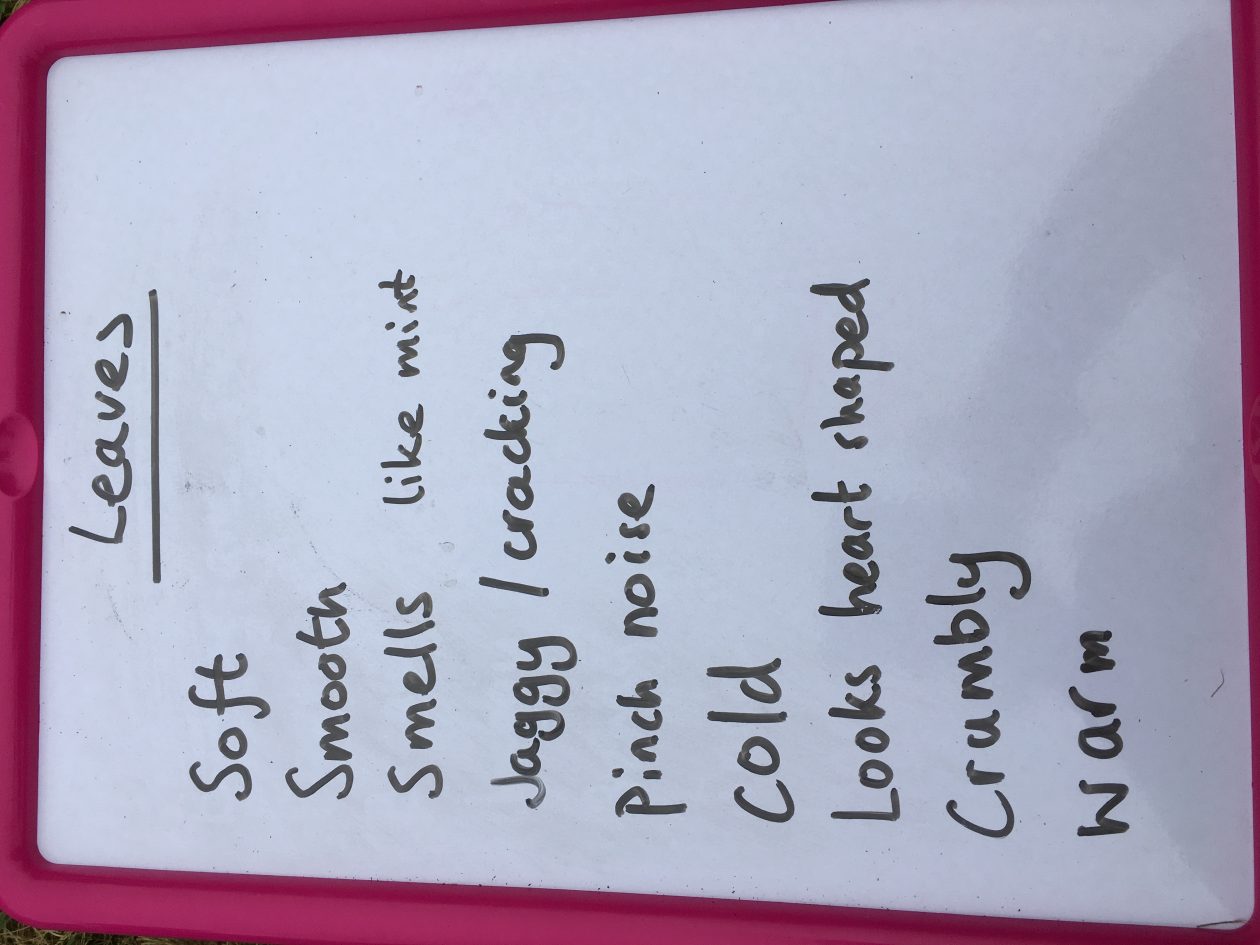 Leaves
Soft
Smooth
Smells like mint
Jaggy / cracking
Pinch noise
Cold
Looks heart shaped
Crumbly
Warm